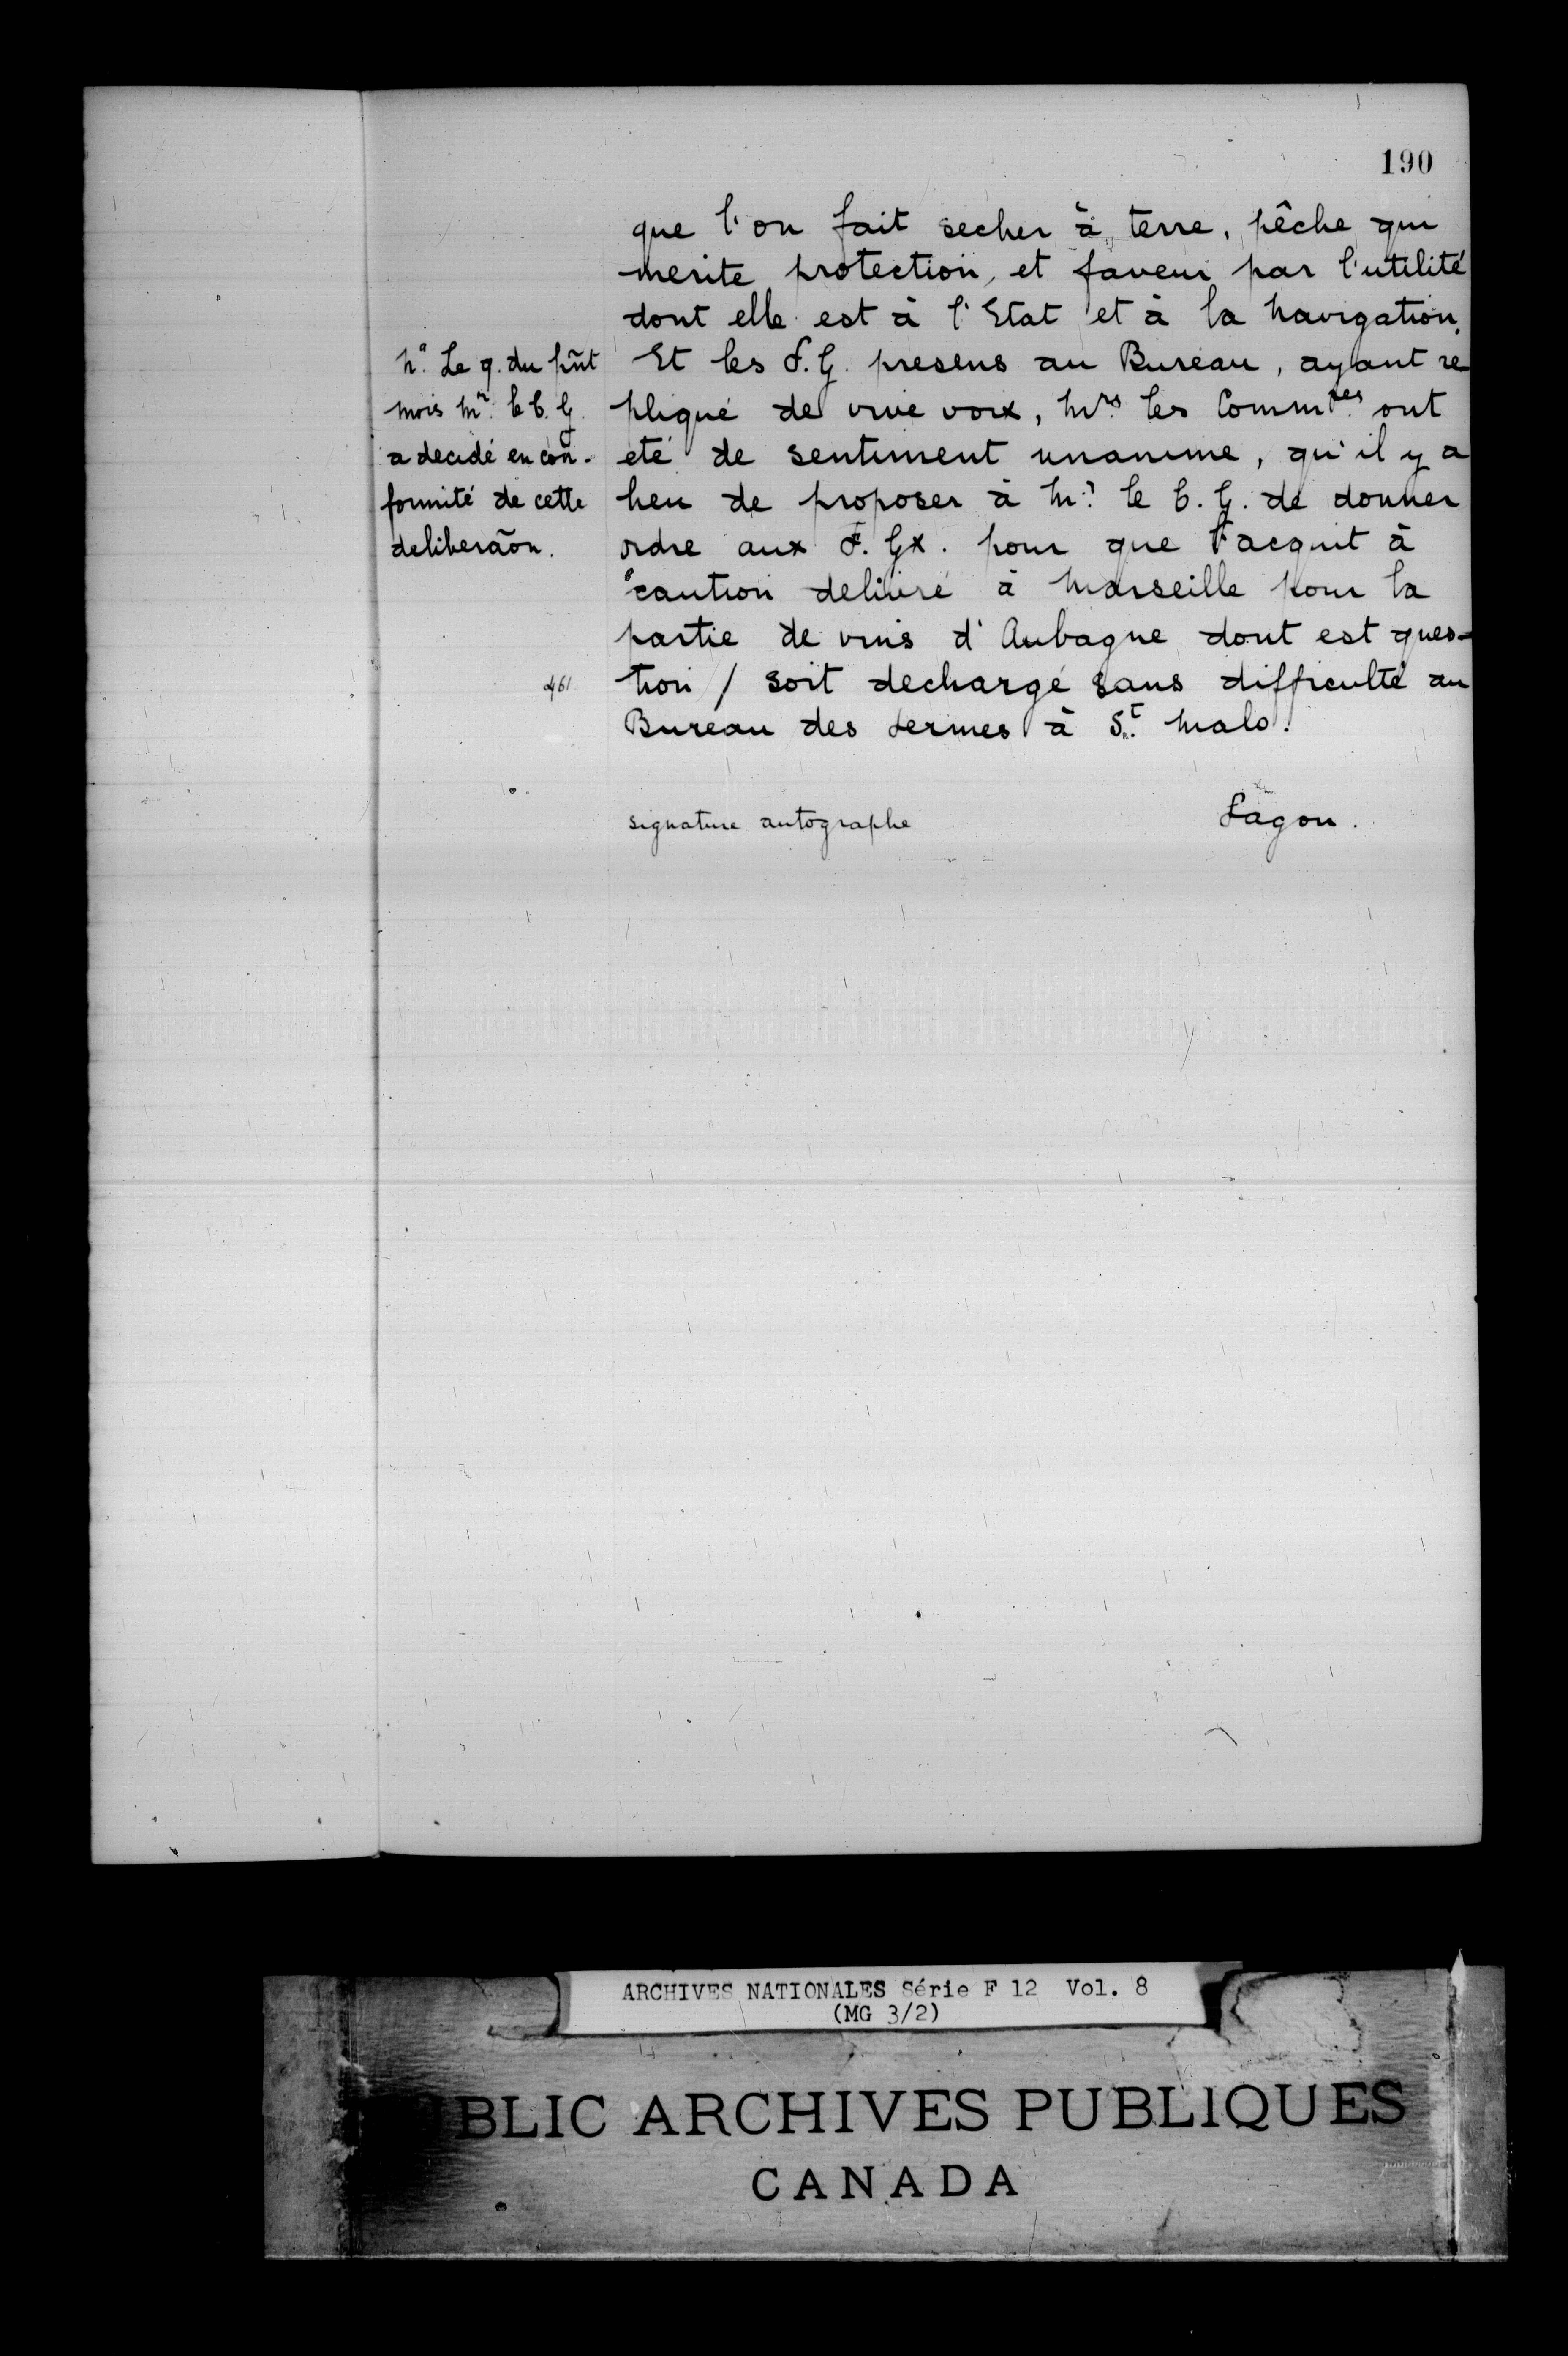 190
que l'on fait secher à terre, pêche qui
merite protection, et faveur par l'utilité
dont elle est à l'Etat et à la Navigation.
Et les F. G. presens au Bureau, ayant re-
pliqué de vive voix, Mrs les Commres ont
eté de sentiment unanime, qu'il y a
lieu de proposer à Mr le C. G. de donner
ordre aux F. Gx. pour que l'acquit à
caution delivré à Marseille pour la
partie de vins d'Aubagne dont est ques-
tion / soit dechargé sans difficulté au
Bureau des fermes à St. Malo.
Na Le 9. du pñt
mois Mr. le C. G.
a decidé en con-
formité de cette
deliberãon.
461
signature autographe Fagon.
ARCHIVES NATIONALES Série F 12 Vol. 8
(MG 3/2)
UBLIC ARCHIVES PUBLIQUES
CANADA